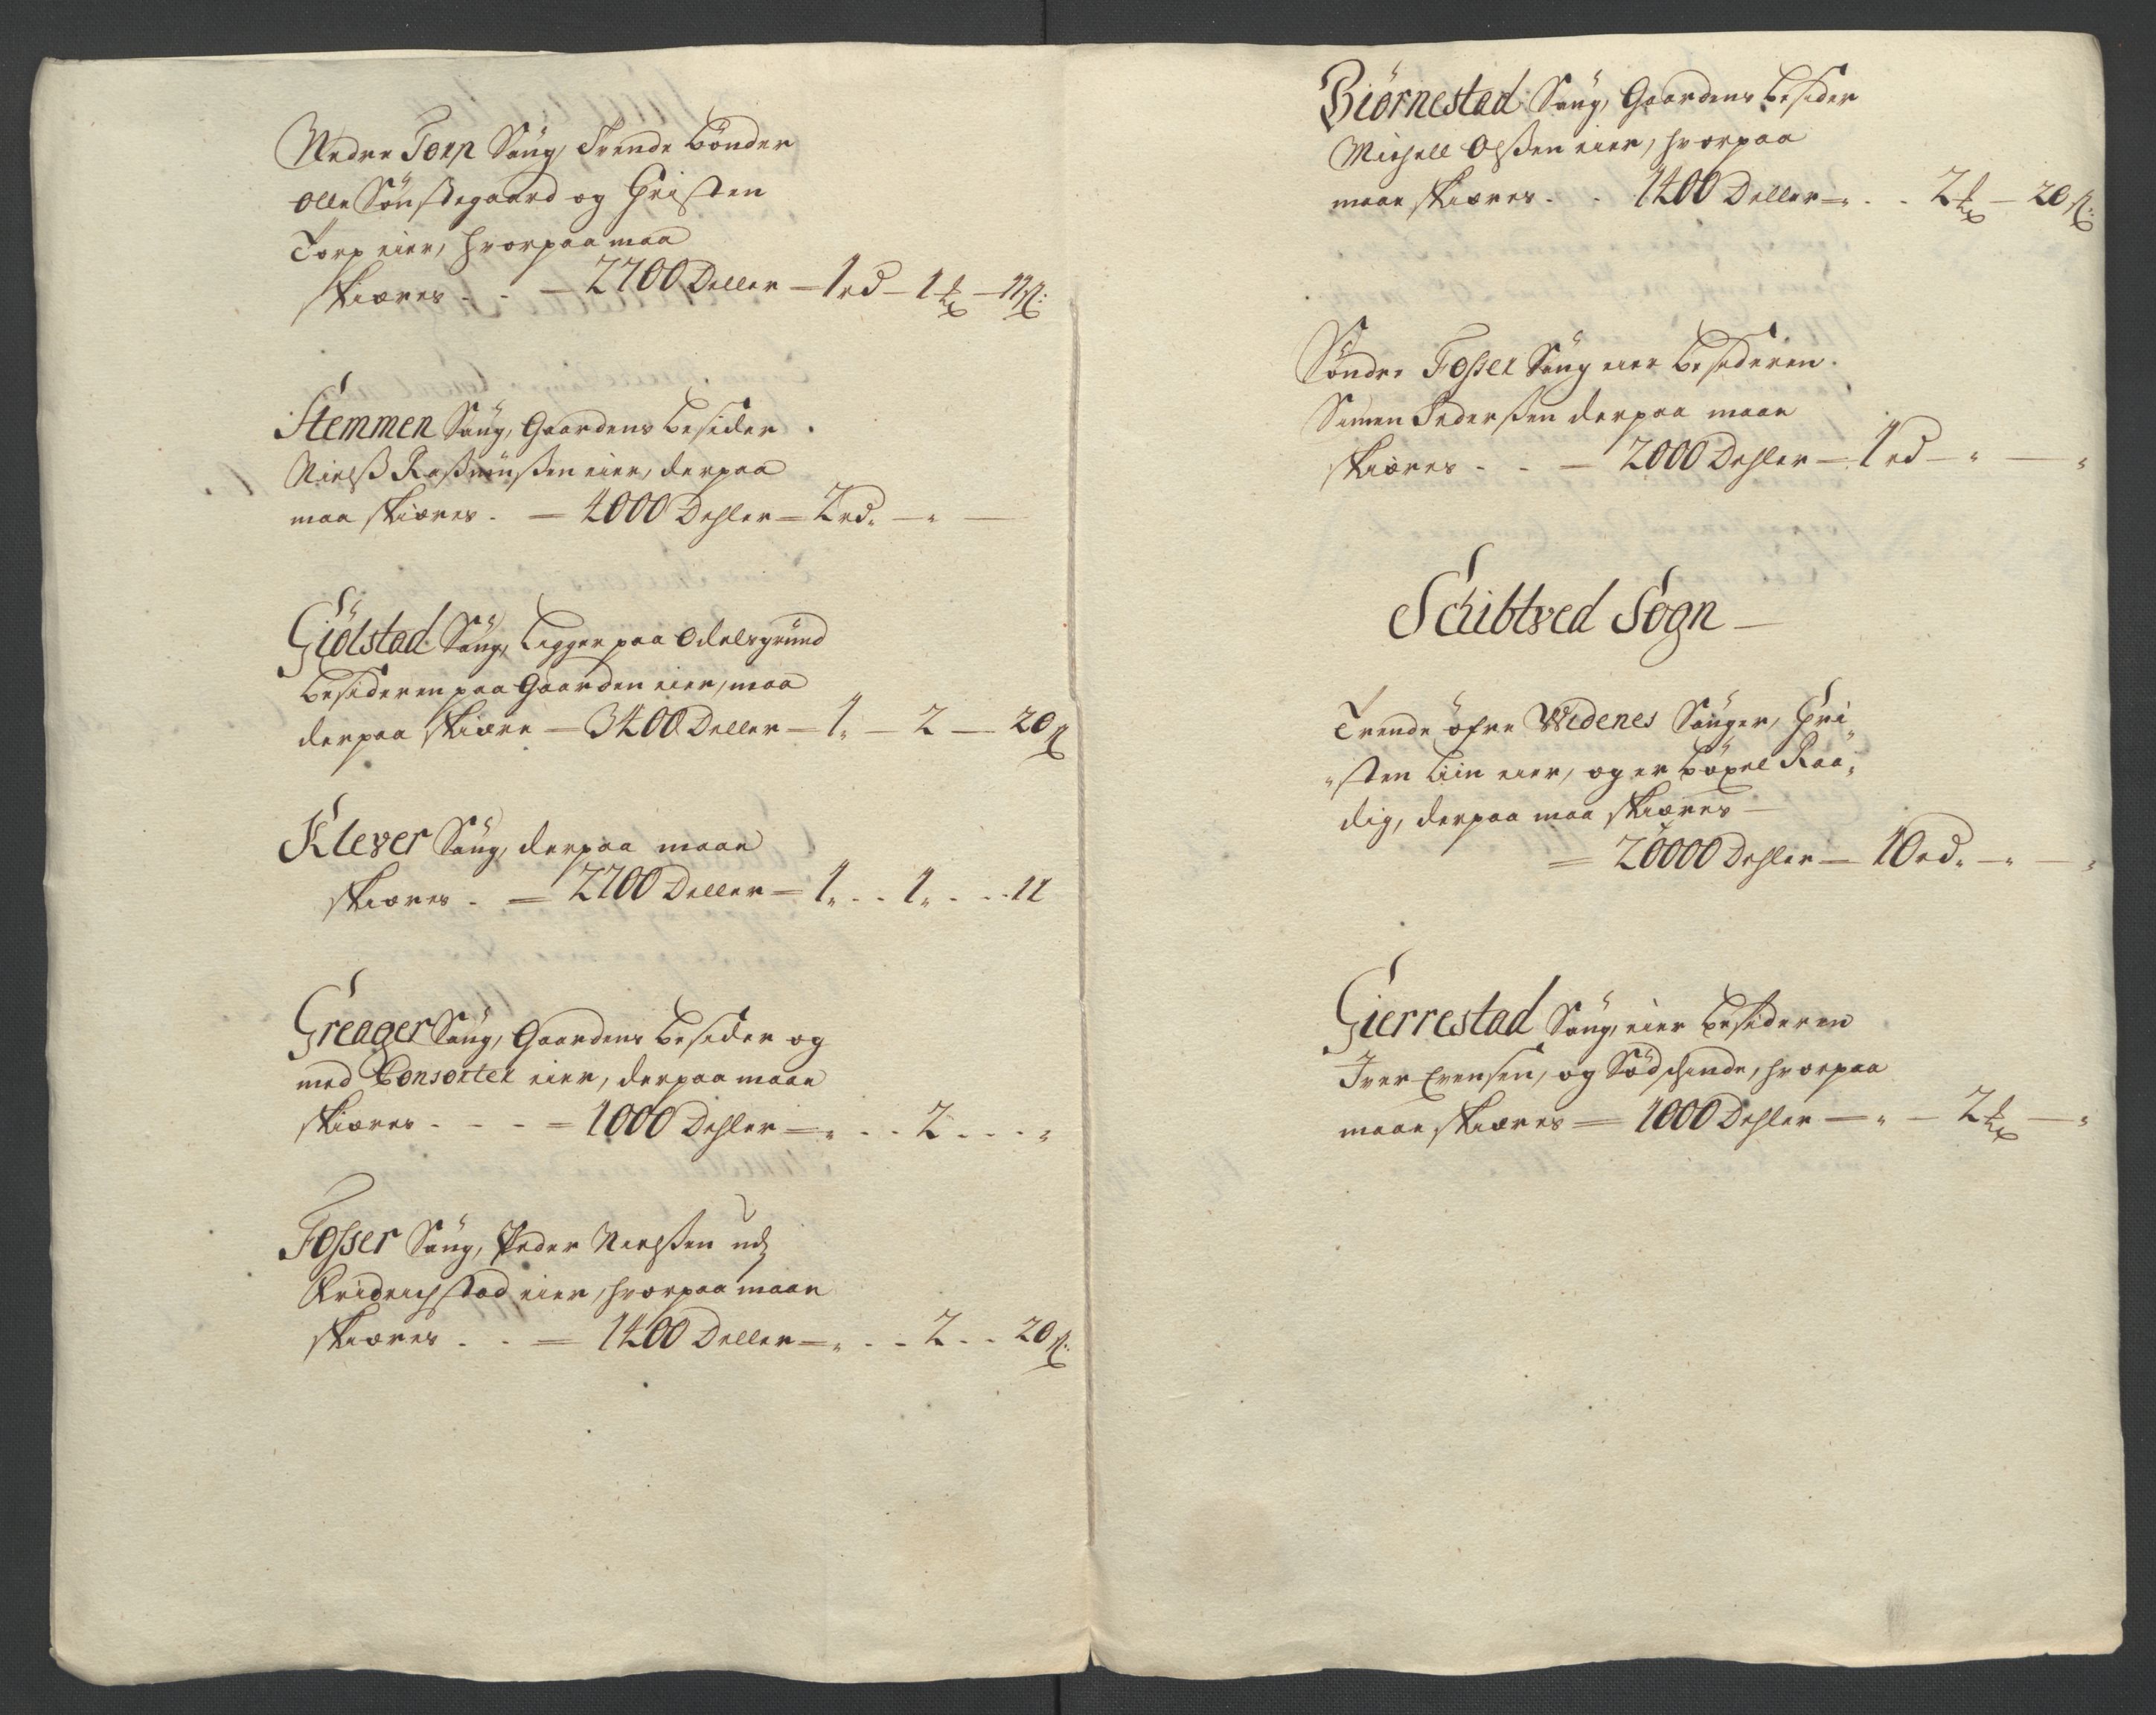 Nedre Torp Saug, Trende bönder
Olle Sönstegaard og Christen
Torp eier, hvorpaa maa
skiæres - - — 2700 Deller — 1 rd — 1 ₰ — 11 ß:
Stemmen Saug, Gaardens besider
Nielß Raßmußen eier, derpaa
maa skiæres . — 4000 Dehler — 2 rd. — „ —
Giölstad Saug, ligger paa Odelsgrund
besideren paa Gaarden eier, maa
derpaa skiære — 3400 Deller — 1„ — 2 — 20 ß
Klever Saug, derpaa maae
skiæres . = 2700 Deller — 1„ . . 1„ . . . 11
Greager Saug, Gaardens besider og
med Consorter eier, derpaa maae
skiæres - - - = 1000 Dehler — „ . . 2 . . . „
Foßer Saug, Peder Nielßen udj
Fridrichstad eier, hvorpaa maae
skiæres . . = 1400 Deller — „ . . 2 . . 20 ß:
Biörnestad Saug, Gaardens besider
Michell Olßen eier, hvorpaa
maae skiæres . . 1400 Deller — „ . . 2 ₰ — 20 ß:
Söndre Foßer Saug eier besideren
Simen Pederßen derpaa maae
skiæres - - — 2000 Dehler — 1 rd — „ — „
Schibtved Sogn —
Trende öfre Widenes Sauger, Chri„
„sten Liin eier, og er böxel Raa„
dig, derpaa maa skiæres —
= 20000 Dehler — 10 rd. — „ — „
Gierrestad Saug, eier besideren
Iver Evensen, og Södschende, hvorpaa
maae skiæres = 1000 Dehler — „ — 2 ₰ — „